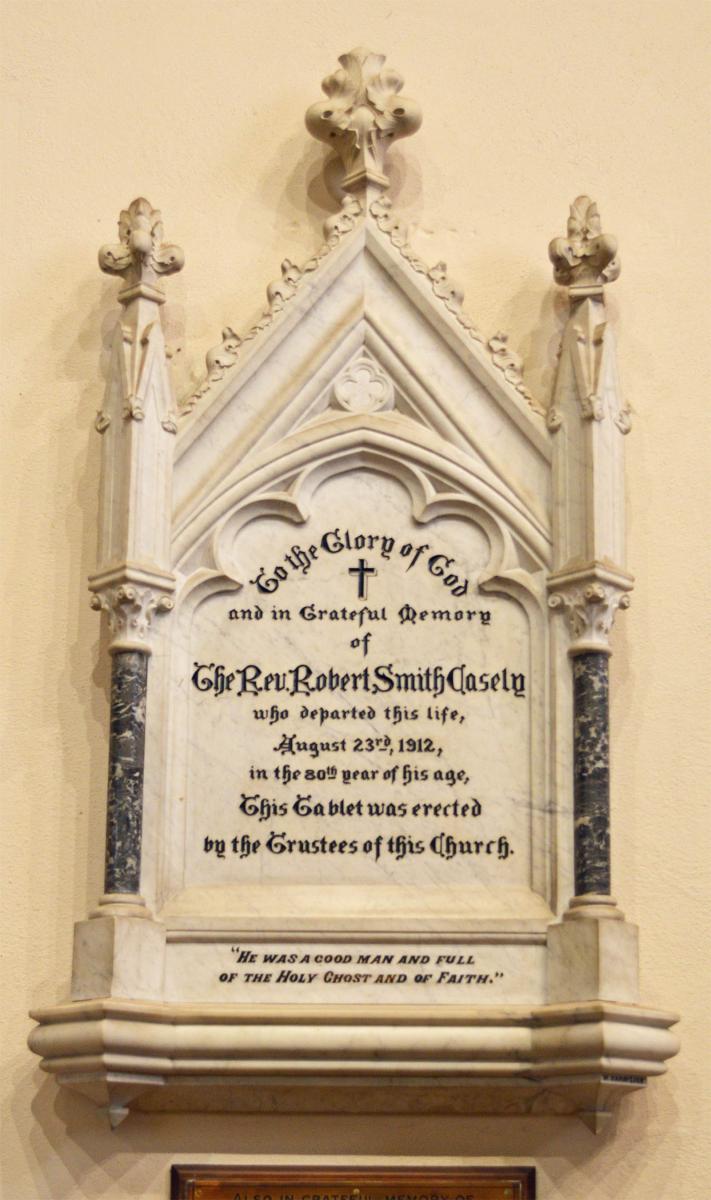 To the Glory of God
and in Grateful Memory
of
The Rev. Robert Smith Casely
who departed this life,
August 23rd, 1912,
in the 80th year of his age,
This Tablet was erected
by the Trustees of this Church.
"HE WAS A GOOD MAN AND FULL
OF THE HOLY GHOST AND OF FAITH."
ALSO IN GRATEFUL MEMORY OF